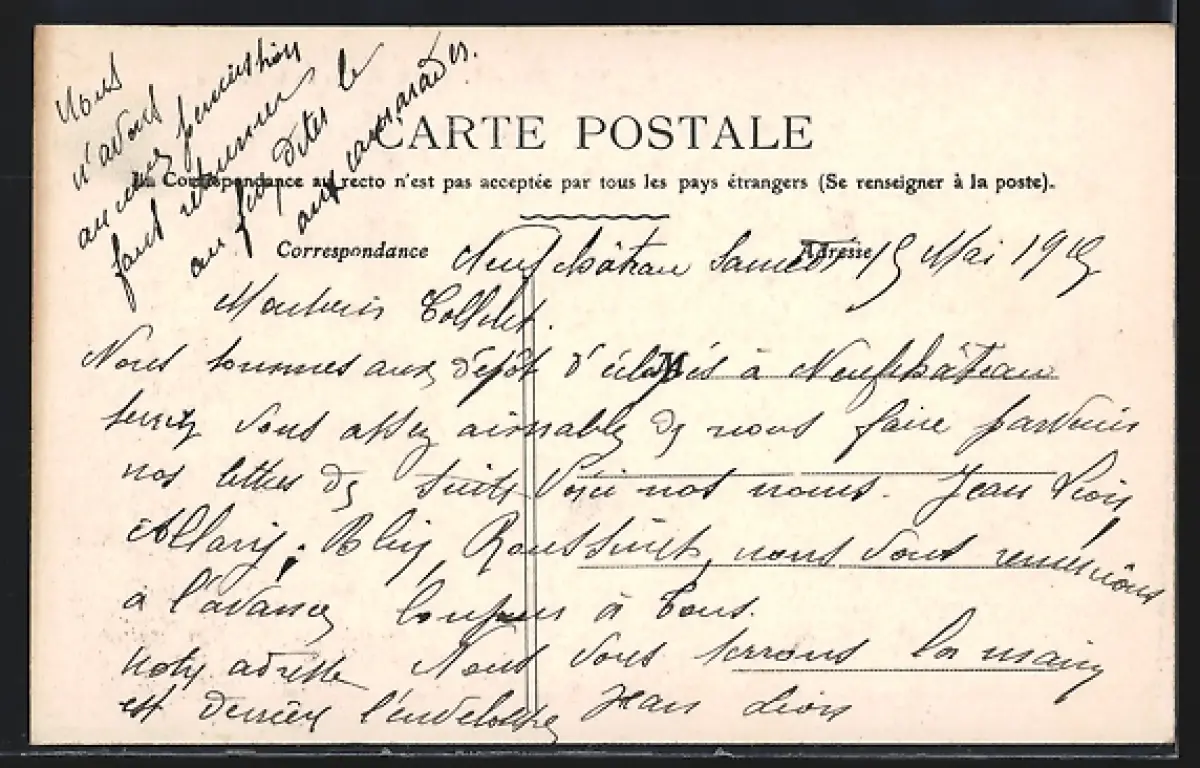 Nous
n'avons
aucune permission
faut retourner le
au dites
aux camarades.
CARTE POSTALE
La Correspondance au recto n'est pas acceptée par tous les pays étrangers (Se renseigner à la poste).
Correspondance
Adresse
Neufchâtau Samedi 15 Mai 1915
Monsieur
Nous sommes aux dépôt d'éclopés à Neufchâteau
serez vous assez aimable de nous faire parvenir
nos lettres de suite Voici nos noms. Jean Lion,
Allary, Roussinet, nous vous remercions
à l'avance à tous.
notre adresse Nous vous serrons la main
est derrière l'enveloppe Jean Lion